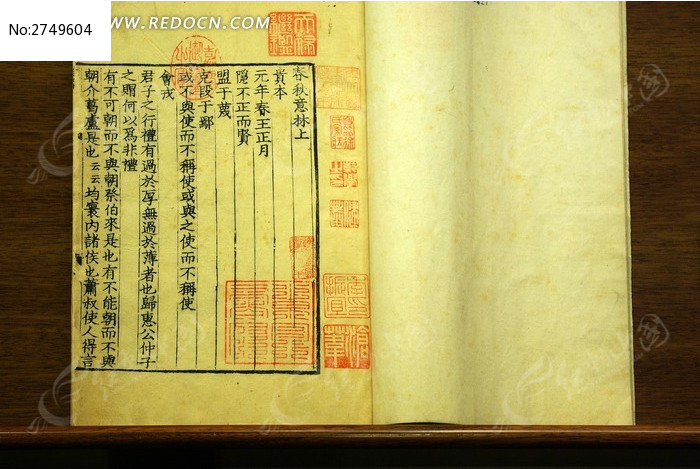 No:2749604
WWW.REDOCN.COM
春秋意林上
貴本
元年春王正月
隱不正而賢
盟于蔑
克段于鄢
或不與使而不稱使或與之使而不稱使
會戎
君子之行禮有過於厚無過於薄者也歸惠公仲子
之賵何以爲非禮
有不可朝而不與朝祭伯來是也有不能朝而不與
朝介葛盧是也云云均寰內諸侯也蕭叔使人得言